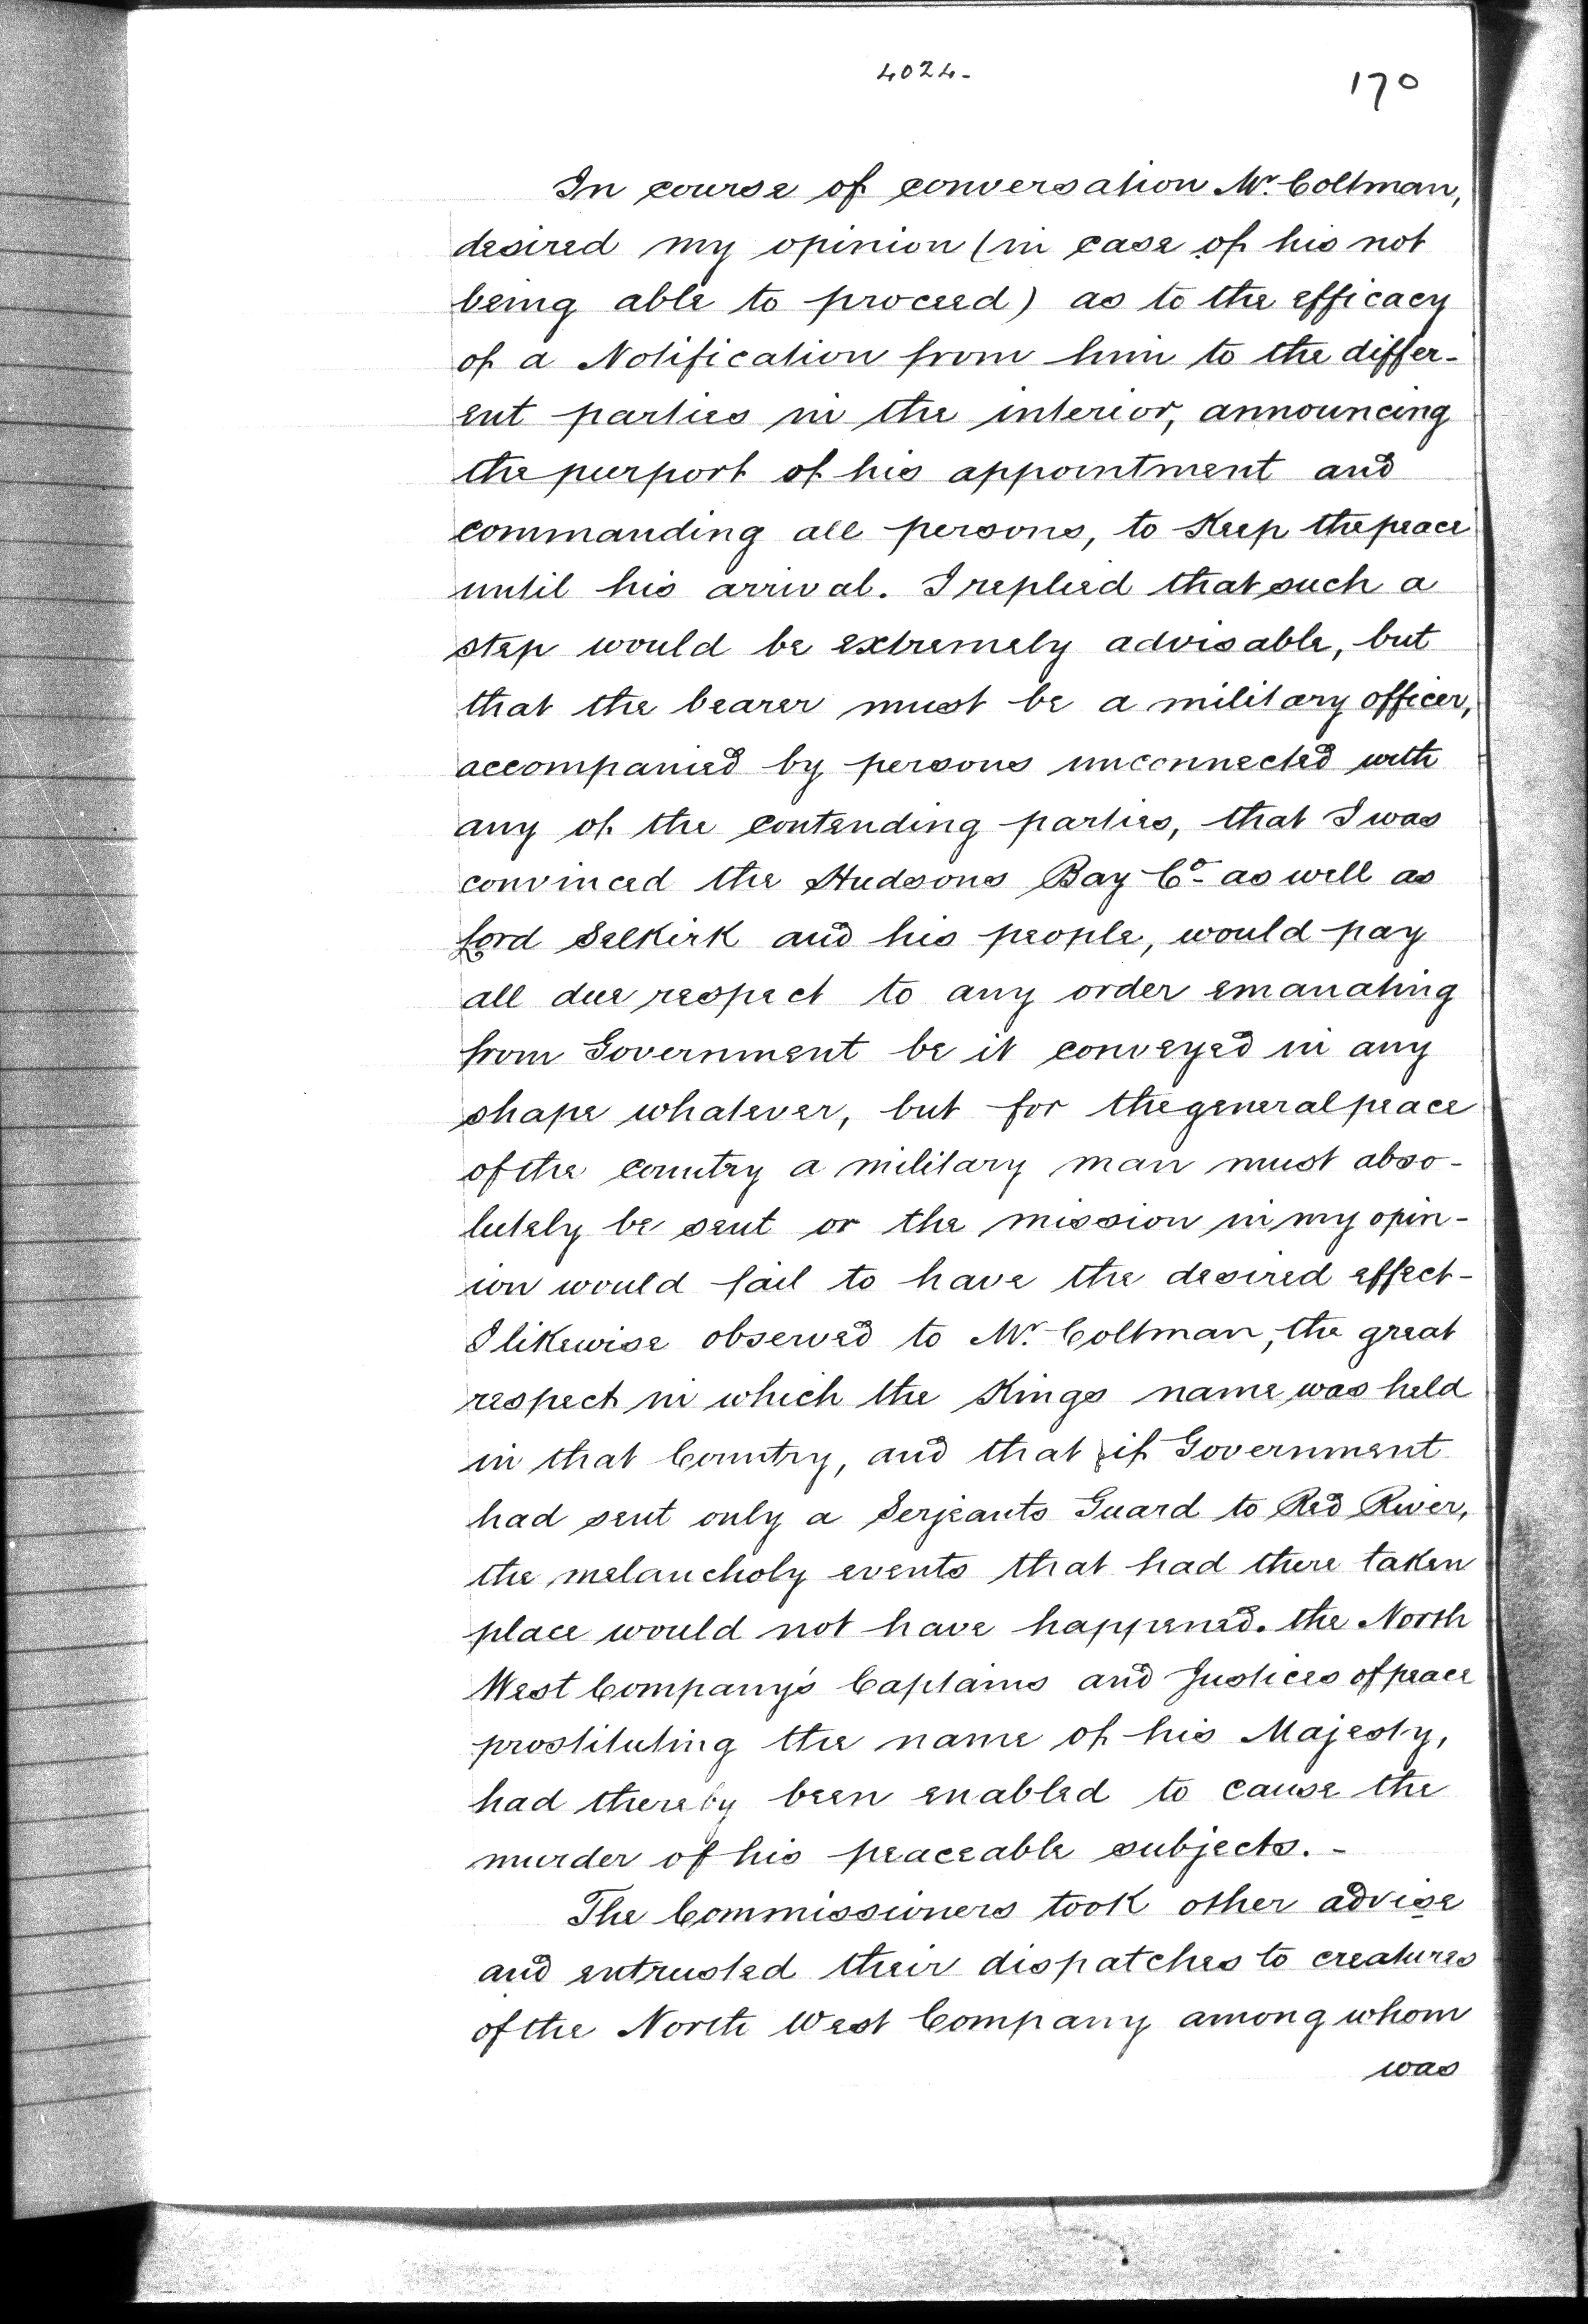 4024-
170
In course of conversation Mr. Coltman,
desired my opinion (in case of his not
being able to proceed) as to the efficacy
of a Notification from him to the differ-
ent parties in the interior, announcing
the purport of his appointment and
commanding all persons, to Keep the peace
until his arrival. I replied that such a
step would be extremely advisable, but
that the bearer must be a military officer,
accompanied by persons unconnected with
any of the contending parties, that I was
convinced the Hudsons Bay Co. as well as
Lord Selkirk and his people, would pay
all due respect to any order emanating
from Government be it conveyed in any
shape whatever, but for the general peace
of the country a military man must abso-
lutely be sent or the mission in my opin-
ion would fail to have the desired effect-
I likewise observed to Mr. Coltman, the great
respect in which the Kings name was held
in that Country, and that if Government
had sent only a Serjeants Guard to Red River,
the melancholy events that had there taken
place would not have happened. the North
West Company's Captains and Justices of peace
prostituting the name of his Majesty,
had thereby been enabled to cause the
murder of his peaceable subjects. -
The Commissioners took other advise
and entrusted their dispatches to creatures
of the North West Company among whom
was